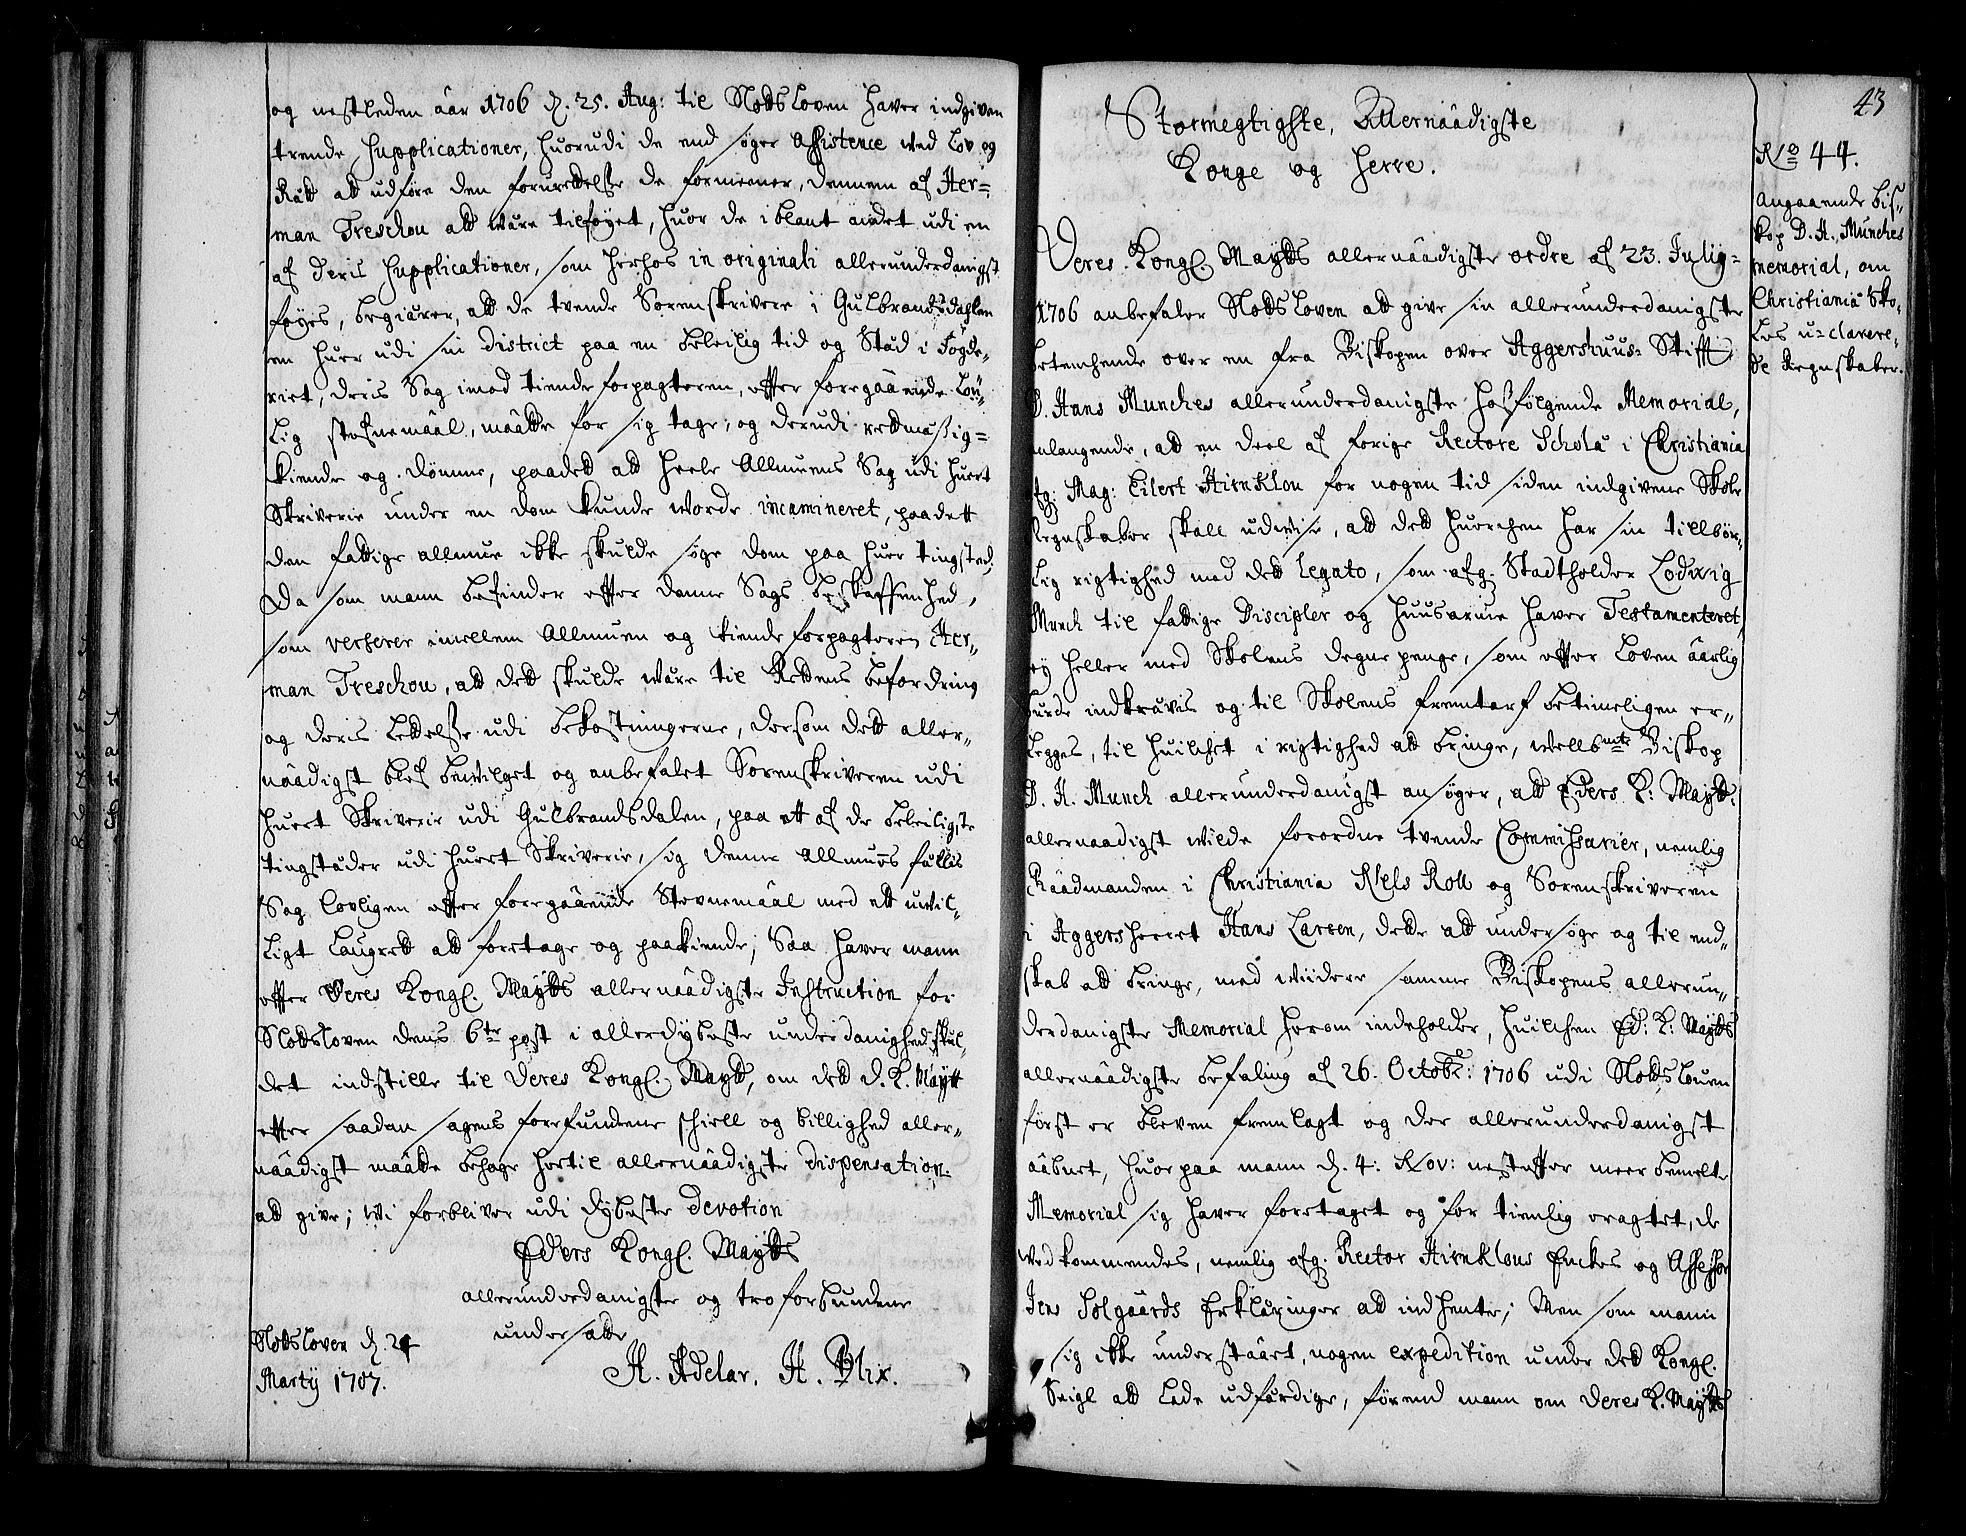 og nestleden åår 1706 d. 25. Aug: til Slotsloven haver indgiven
trende Supplicationer, huorudi de end søger Assistence ved Lov og
Rätt att udføre den forurettelse de formeener, dennem af Her=
man Treschou att være tilføyet, huor de iblant andet udi en
af deris Supplicationer, som herhos in originali allerunderdanigst
føyes, begiærer, att de tvende Sorenskrivere i Gulbrandsdahlen
en huer udi sin District paa en beleilig tid og Stæd i Fogde,,
riet, deris Sag imod tiende forpagteren, effter foregaaende Lou,,
lig stefnemaal, maatte for sig tage, og derudi rettmæssig=
kiende og dømme, paadett att heele Allmuens Sag udi huert
Skriverie under en dom kunde worde incamineret, paadett
den fattige allmue ikke skulde søge dom paa huer tingsted;
Da som mann befinder effter denne Sags beskaffenhed,
som verserer imellem Allmuen og tiende forpagteren Her,,
man Treschou, att dett skulde være til Rettens befordring
og deris lettelse udi bekostningerne, dersom dett aller,,
naadigst blef bevilget og anbefalet Sorenskriveren udi
huert Skriverie udi Gulbrandsdalen, paa ett af de beleiligste
tingstæder udi huert Skriverie, sig denne Allmues fællis
Sag lovligen effter foregaaende Stevnemaal med ett uvil,,
ligt Laugrett att foretage og paakiende; Saa haver mann
effter Deres Kongl. Maytts allernaadigste Instruction for
Slotsloven dens 6te post i allerdybeste underdanighed skul,,
det indstille til Deres Kongl. Maytt, om dett D. K. Maytt
effter saadan sagens forefundene schiell og billighed aller,,
naadigst maatte behage hertil allernaadigste dispensation
att give; Wi forbliver udi dybeste devotion
Eders Kongl. Maytts
allerunderdanigste og troforbundene
undersatte
Slotsloven d. 24
Martij 1707.
H. Adelar. H. Blix.
43
Stormegtigste, Allernaadigste
Konge og Herre.
No 44.
Angaaende Bis,,
kop D. H. Munches
memorial, om
Christiania Sko,,
les u=clarere,,
de Regnskaber.
Deres Kongl. Maytts allernaadigste ordre af 23. Julij
1706 anbefaler Slotsloven att give sin allerunderdanigste
betenchende over en fra Biskopen over Aggershuus Stifft
D. Hans Munches allerunderdanigste hosfølgende Memorial,
anlangende, att en deel af forige Rectore Scholæ i Christiania
afg: Mag: Eilert Hirnklou for nogen tid siden indgivene Skole
Regnskaber skall udvise, att dett huerchen har sin tillbør,,
lig rigtighed med det Legato, som afg. Stadtholder Lodwig
Munch til fattige Discipler og huusarme haver Testamenteret,
ey heller med Skolens degne penge, som effter Loven åårlig
burde indkrævis og til Skolens fremtarf betimeligen er,,
legges, til huilchet i rigtighed att bringe, wellbmte Biskop
D. H. Munch allerunderdanigst ansøger, att Eders K: Maytt:
allernaadigst wilde forordne tvende Commissarier, nemlig
Raadmanden i Christiania Niels Roll og Sorenskriveren
i Aggers herret Hans Larsen, dette att undersøge og til end,,
skab att bringe, med widere samme Biskopens allerun,,
derdanigste Memorial herom indeholder, huilchen Ed: K: Maytts
allernaadigste befaling af 26. Octobr: 1706 udi Slotsloven
først er bleven fremlagt og der allerunderdanigst
aabnet, huorpaa mann d. 4. Nov: nesteffter meer bemelte
Memorial sig haver foretaget og for tienlig eragtet, de
vedkommendes, nemlig afg. Rector Hirnklous Enckes og Assessor
Jens Solgaards Erklæringer att indhente; Men som mann
sig ikke understaaet, nogen expedition under det Kongl.
Seigl att lade udfærdige, førend mann om Deres K. Maytts